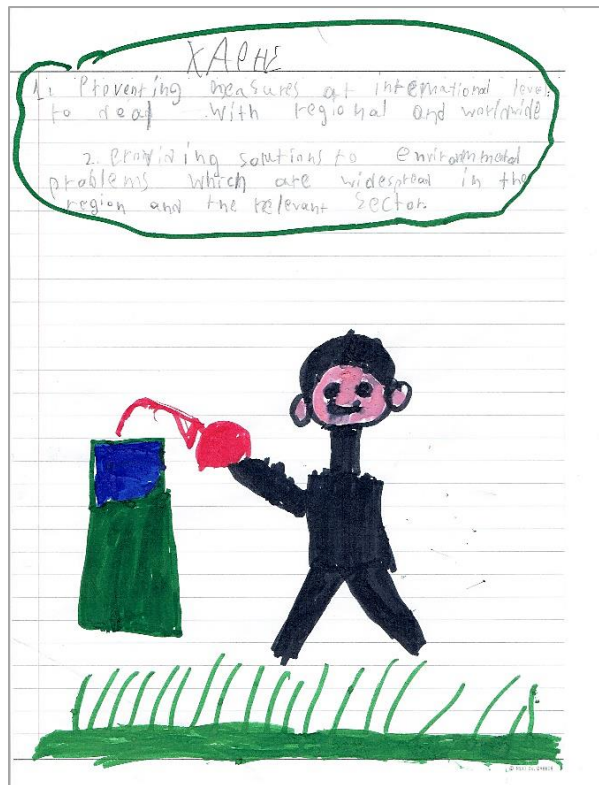 ΧΑΡΗΣ
1. Preventing measures at international level
to deal with regional and worldwide
2. Providing solutions to environmental
problems which are widespread in the
region and the relevant sector.